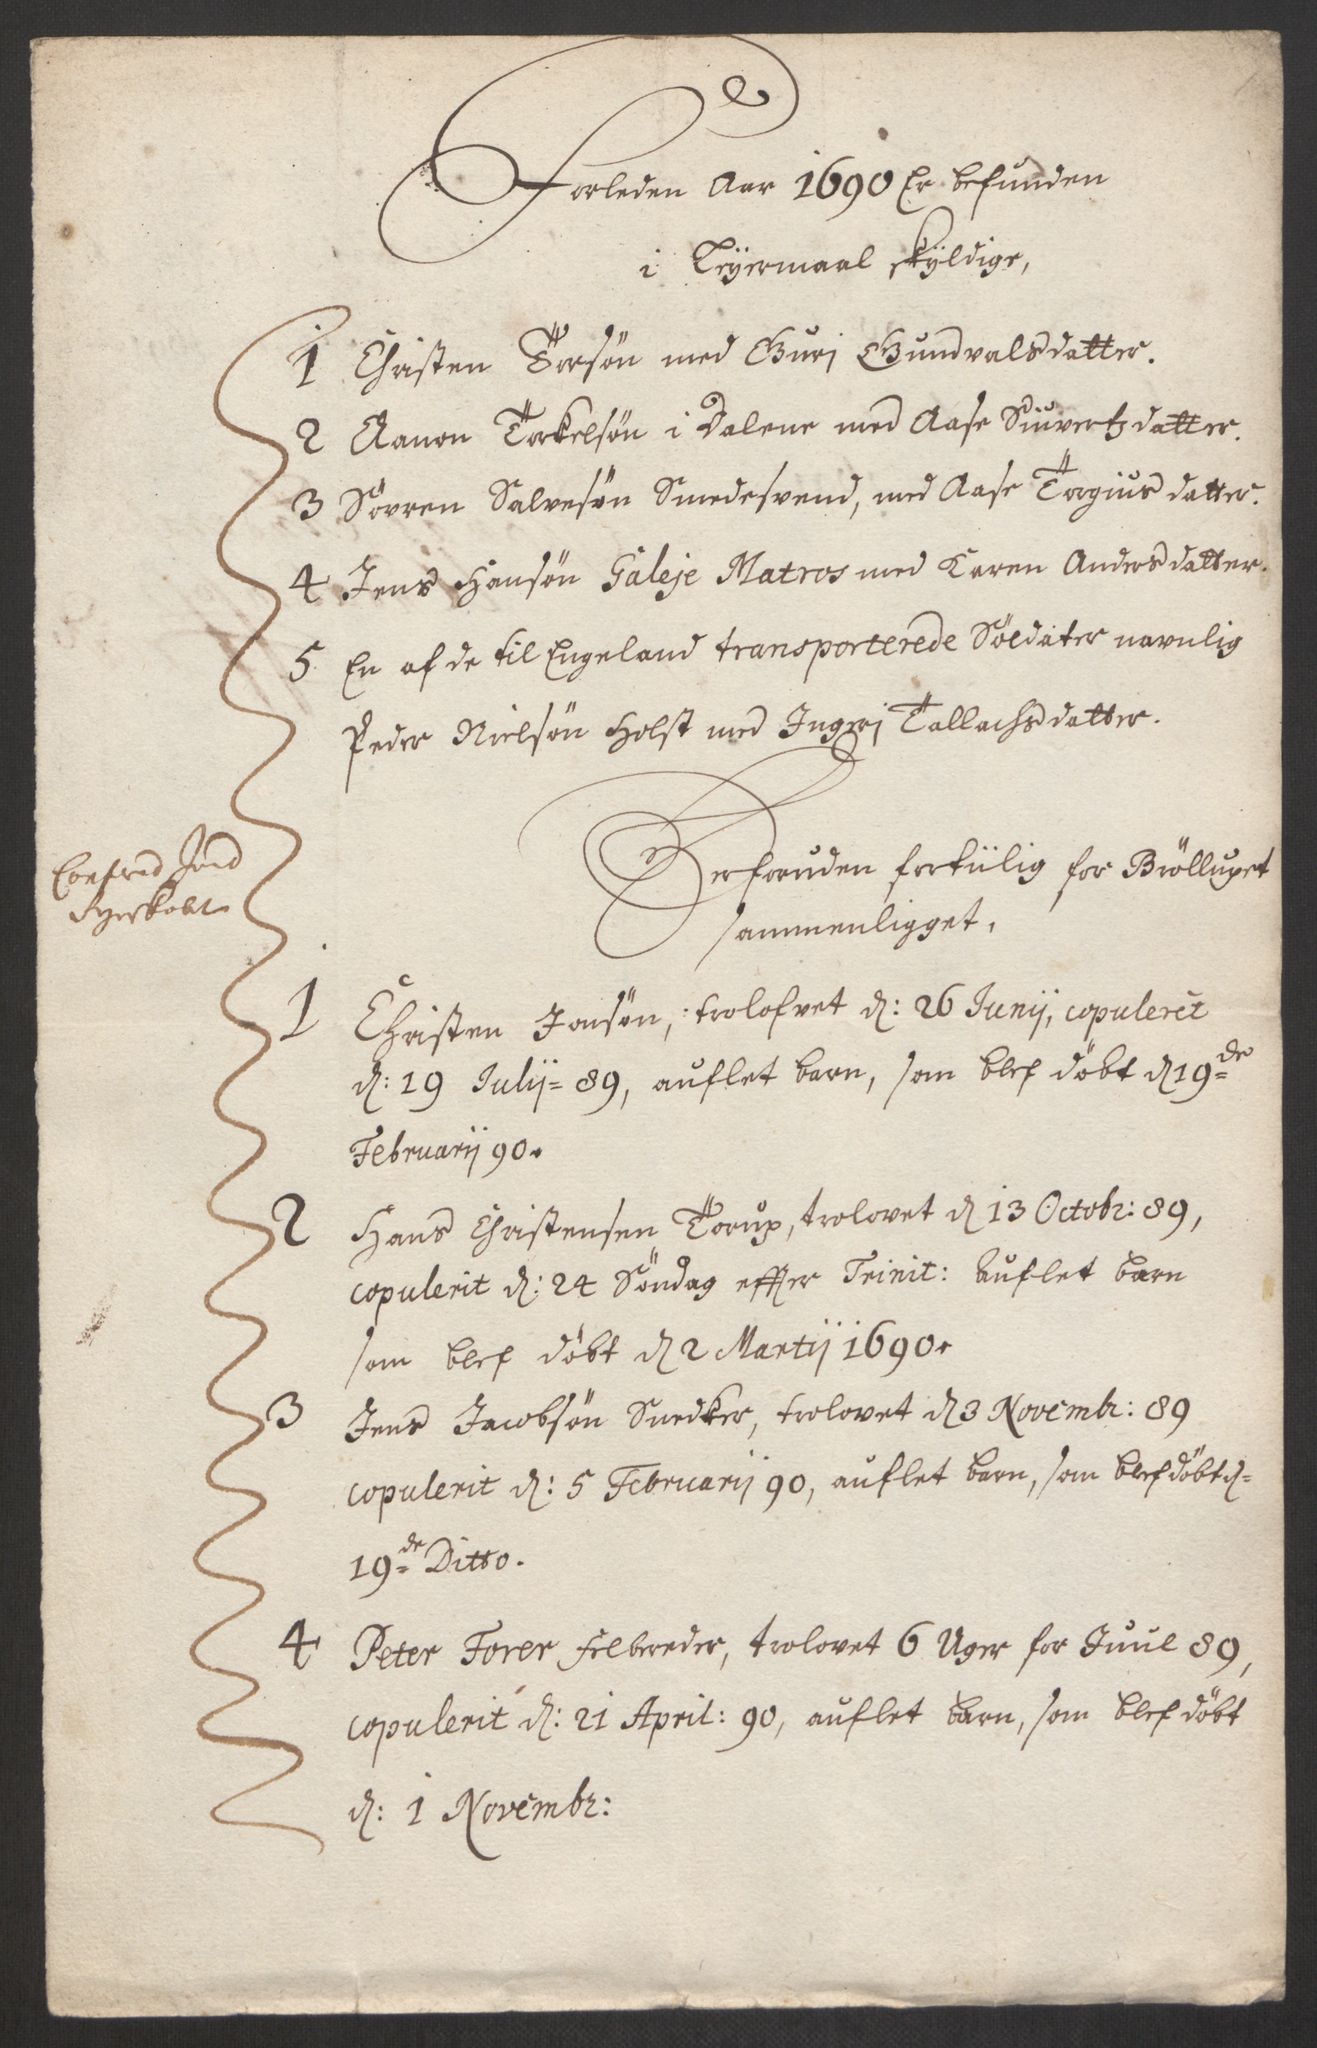 Forleden Aar 1690 Er befunden
i Leyermaal skÿldige,
1 Christen Torsøn med Gurj Gundvalsdatter.
2 Aanon Torkelsøn i Dalene med Aase Siuvertzdatter.
3 Søvren Salvesøn Smedesvend, med Aase Torgiusdatter.
4 Jens Hansøn Galeje Matros med Karen Andersdatter.
5 En af de til Engeland transporterede Söldater navnlig
Peder Nielsøn Holst med Ingerj Tallachsdatter.
Derforuden fortiilig for Brölluppet
sammenligget,
1 Christen Jonsøn, trolofvet d: 26 Junij, copulerit
d: 19 Julij= 89, auflet barn, som blef döbt d 19=de
Februarij 90.
2 Hans Christensen Torup, trolovet d 13 Octobr: 89,
copulerit d: 24 Söndag effter Trinit: Auflet barn
som blef döbt d 2 Martij 1690.
3 Jens Jacobsøn Snedker, trolovet d 3 Novembr: 89
copulerit d: 5 Februarij 90, auflet barn, som blef döbt d=
19=de Ditto.
4 Peter Forer Felbereder, trolovet 6 Uger for Juul 89,
copulerit d: 21 April: 90, auflet barn, som blef döbt
d: 1 Novembr: